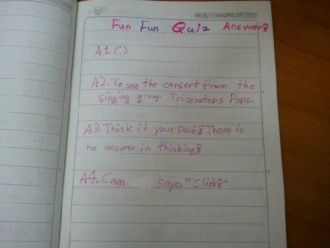 Fun Fun Quiz Answers
A1. C)
A2. To see the consert from the
singing group Triseratops Pops.
A3. Think it your self! There is
no answer in thinking!
A4. Cam says "Click!"